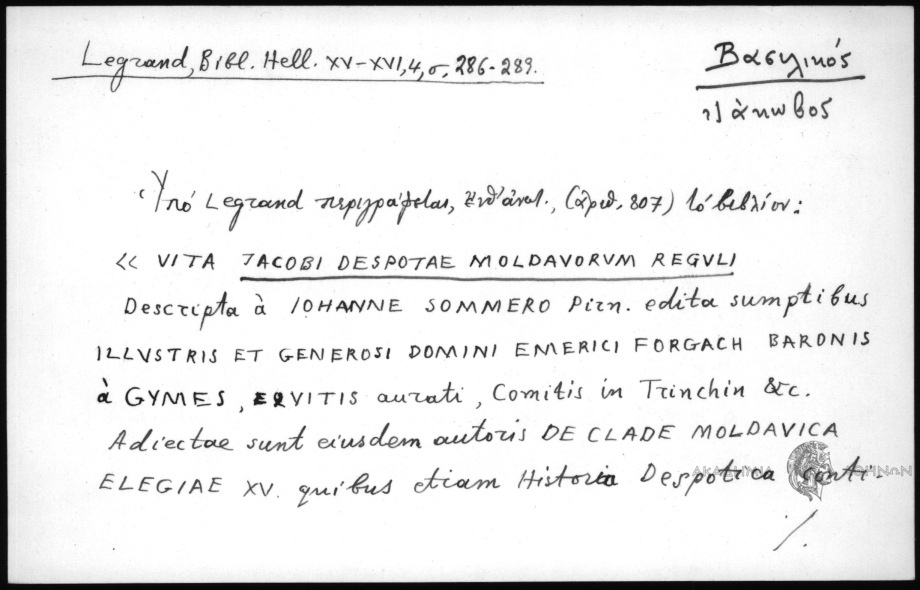 Legrand, Bibl. Hell. XV-XVI, 4, σ. 286-289.
Βασιλικός
Ἰάκωβος
Ὑπό Legrand περιγράφεται, ἐνθ' ἀνωτ., (ἀριθ. 807) τό βιβλίον:
« VITA JACOBI DESPOTAE MOLDAVORVM REGVLI
Descripta à IOHANNE SOMMERO Pirn. edita sumptibus
ILLVSTRIS ET GENEROSI DOMINI EMERICI FORGACH BARONIS
à GYMES, EQVITIS aurati, Comitis in Trinchin &c.
Adiectae sunt eiusdem autoris DE CLADE MOLDAVICA
ELEGIAE XV. quibus etiam Historia Despotica conti-
ΑΚΑΔΗΜΙΑ ΑΘΗΝΩΝ
./.